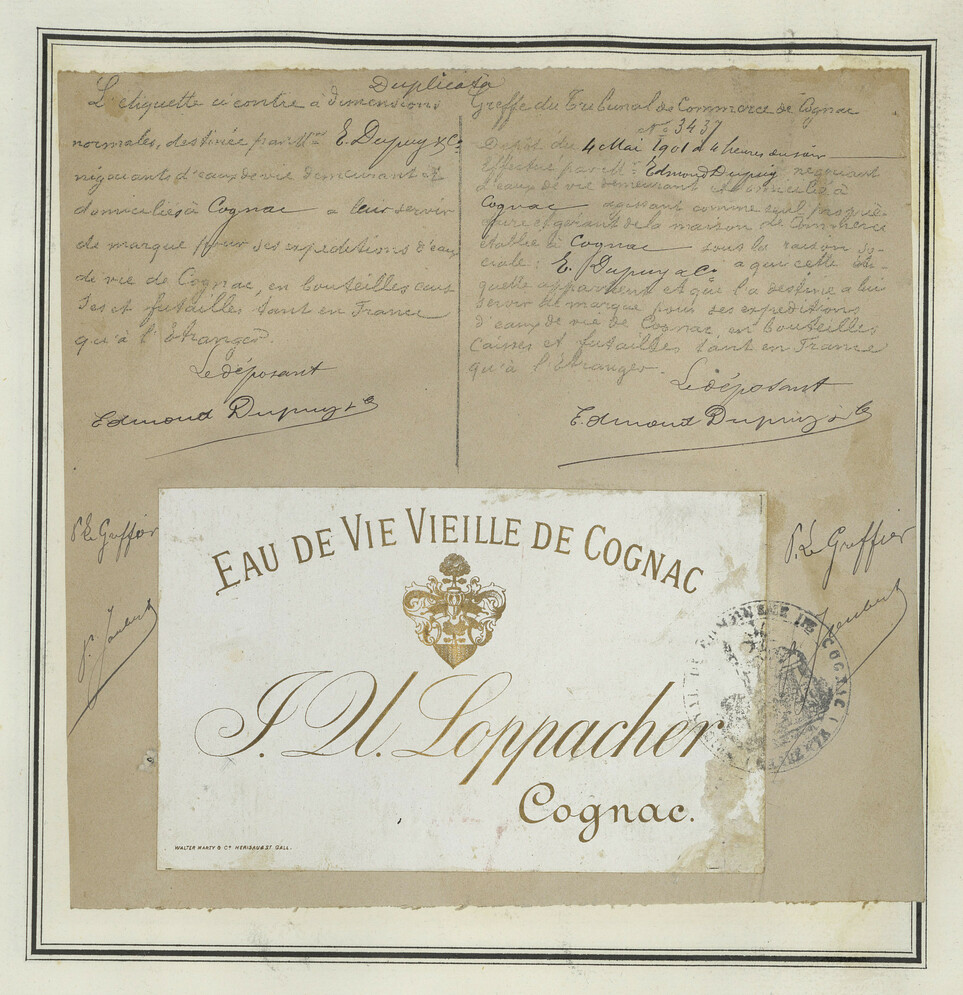 Duplicata
L'étiquette ci contre à dimensions
normales, destinée par Mrs E. Dupuy & Co
négociants d'eaux de vie demeurant et
domiciliés à Cognac a leur servir
de marque pour ses expéditions d'eaux
de vie de Cognac, en bouteilles cais
ses et futailles tant en France
qu'à l'Étranger.
Le déposant
Edmond Dupuy & Co
Greffe du Tribunal de Commerce de Cognac
No 3437
Dépôt du 4 Mai 1901 à 4 heures du soir
Effectué par Mr Edmond Dupuy négociant
d'eaux de vie demeurant et domicilié à
Cognac agissant comme seul proprié-
taire et gérant de la maison de Commerce
établie à Cognac sous la raison so-
ciale : E. Dupuy & Co a qui cette éti-
quette appartient et qui l'a destiné a lui
servir de marque pour ses expéditions
d'eaux de vie de Cognac, en bouteilles
Caisses et futailles tant en France
qu'à l'Étranger.
Le déposant
Edmond Dupuy & Co
P. Le Greffier
P. Joubert
P. Le Greffier
Joubert
EAU DE VIE VIEILLE DE COGNAC
J. U. Loppacher
Cognac.
WALTER MARTY & Co HERISAU & ST. GALL.
COGNAC